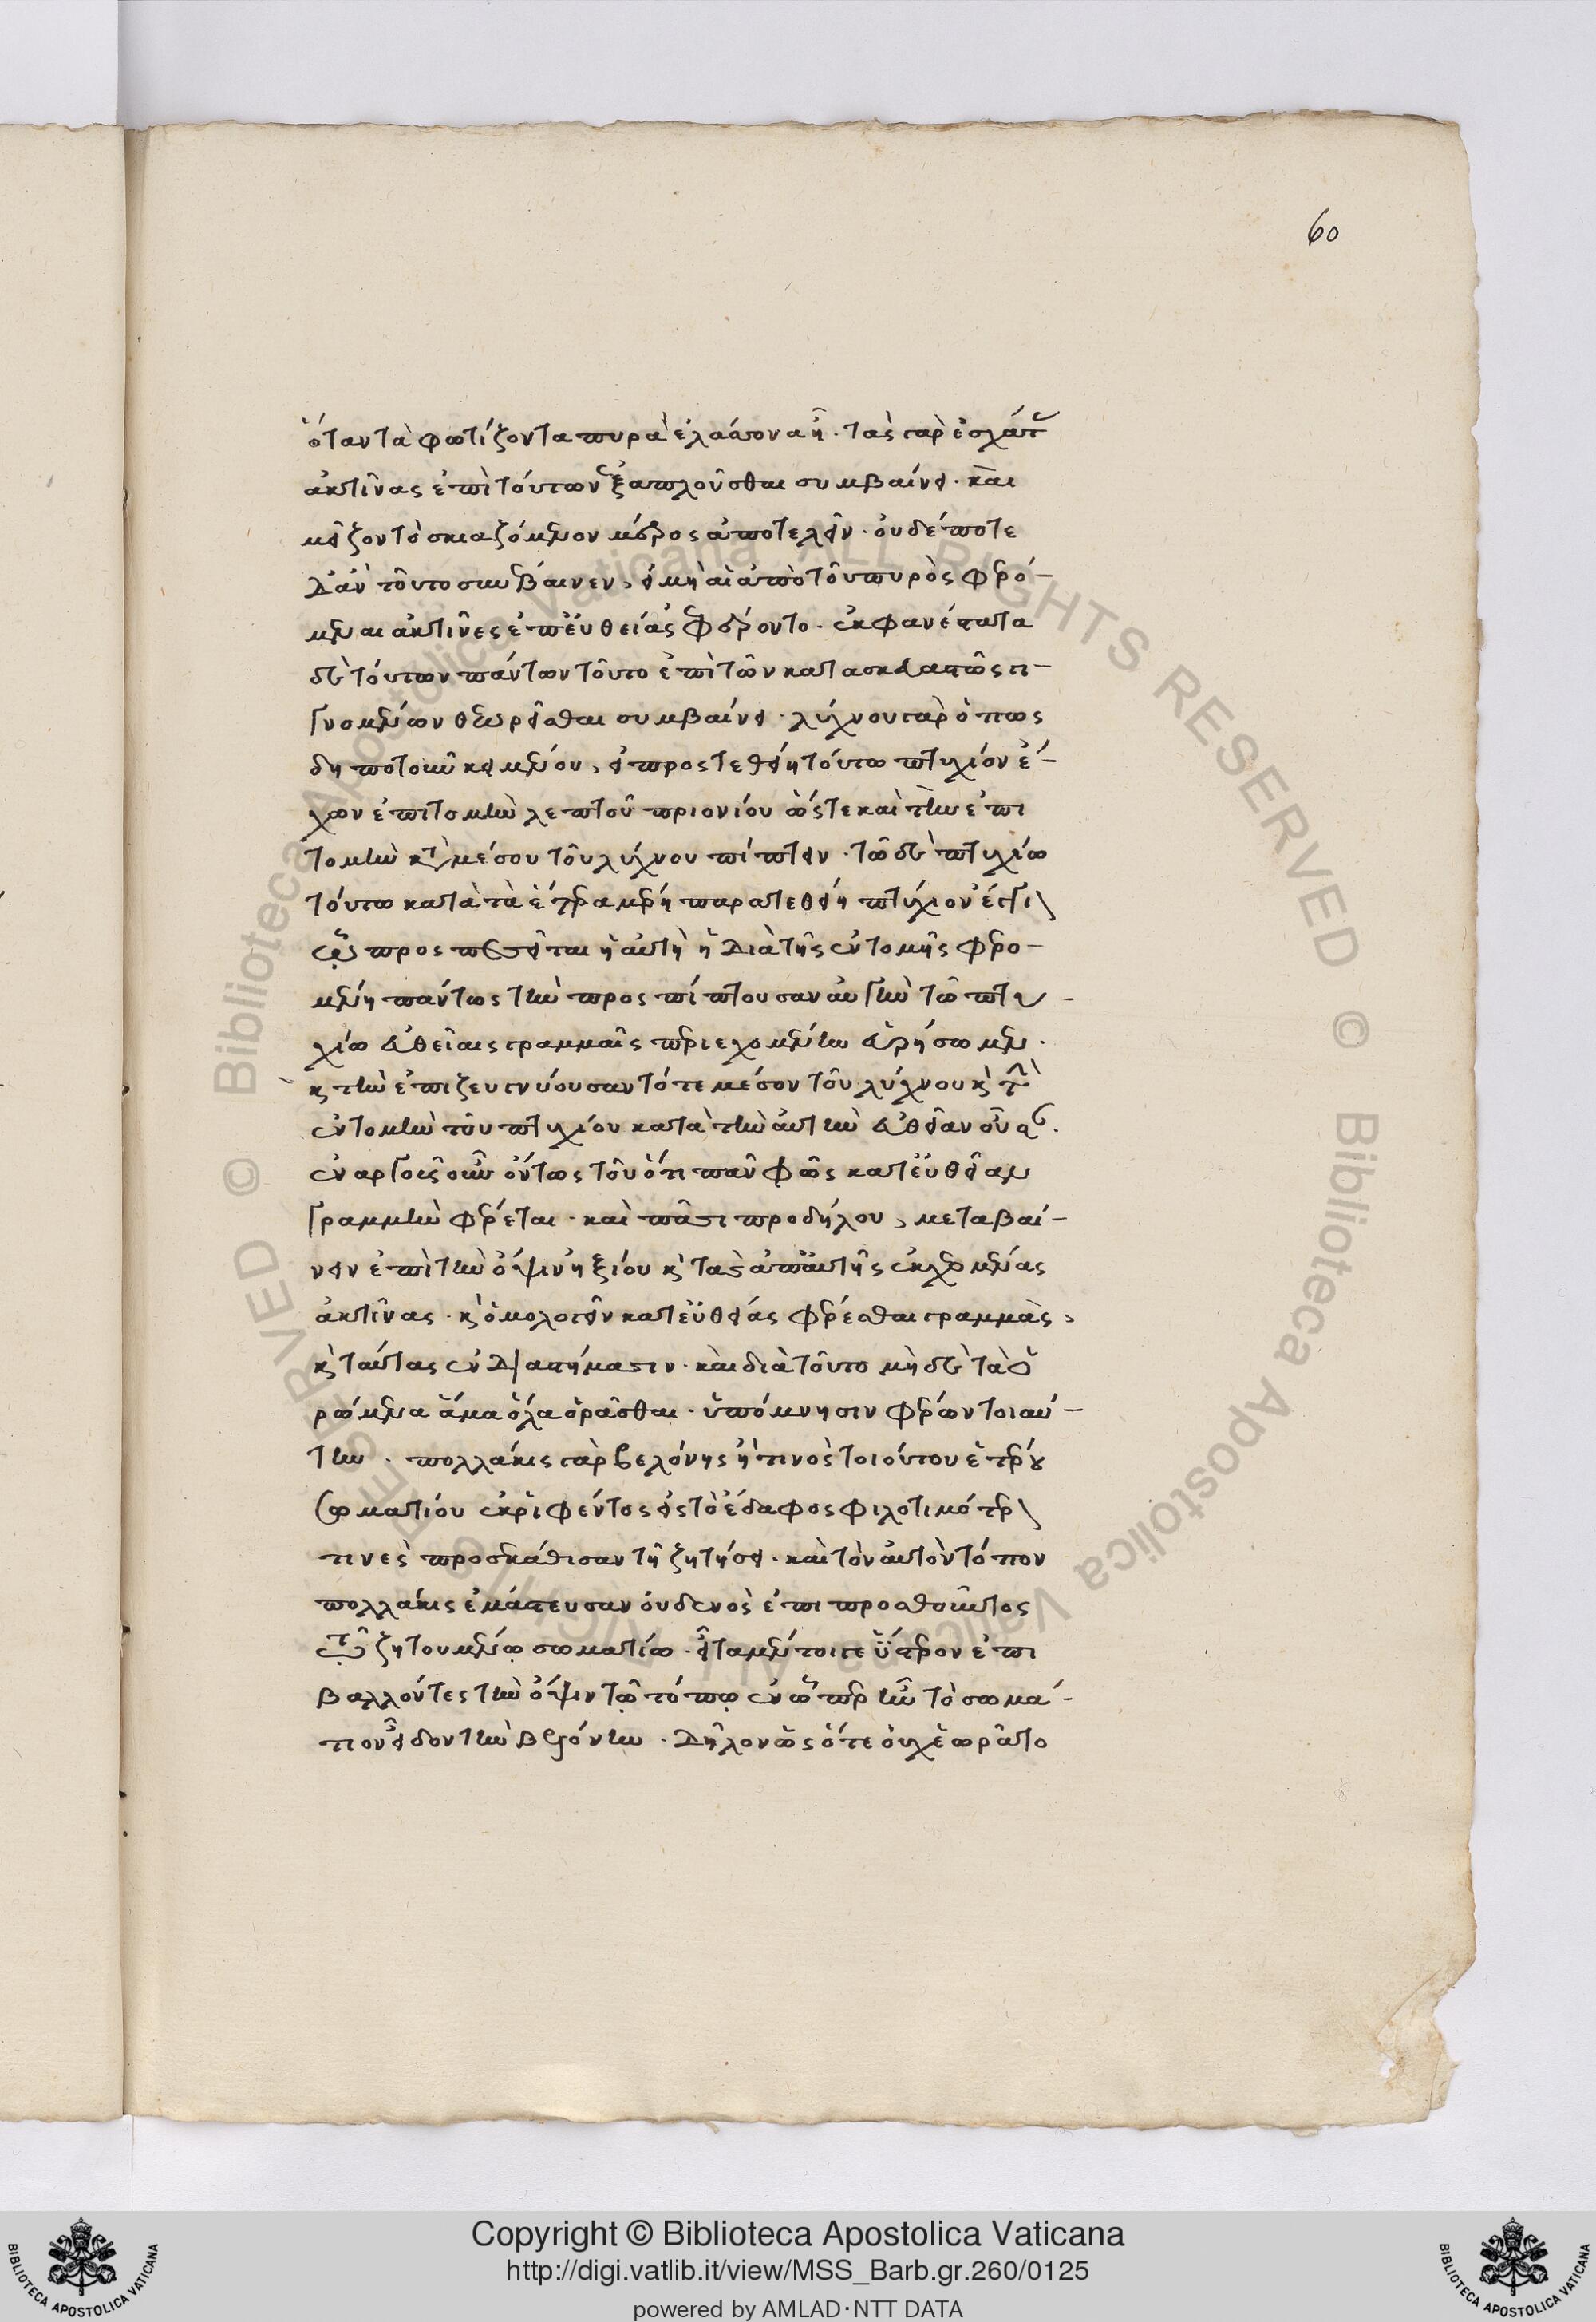 60
ὅταν τὰ φωτίζοντα πυρὰ ἐλάττονα ᾖ. τὰς γὰρ ἐσχάτας
ἀκτῖνας ἐπὶ τούτων ἐξαπλοῦσθαι συμβαίνει. καὶ
μεῖζον τὸ σκιαζόμενον μέρος ἀποτελεῖν. οὐδέποτε
δ' ἂν τοῦτο συνέβαινεν, εἰ μὴ αἱ ἀπὸ τοῦ πυρὸς φερό-
μεναι ἀκτῖνες ἐπ' εὐθείας ἐφέροντο. ἐκφανέστατα
δὲ τούτων πάντων τοῦτο ἐπὶ τῶν κατασκευαστῶς γι-
γνομένων θεωρεῖσθαι συμβαίνει. λύχνου γὰρ ὅπως
δηποτοῦν κειμένου, εἰ προστεθείη τούτω πτυχίον ἔ-
χον ἐπιτομὴν λεπτοῦ πριονίου ὥστε καὶ τὴν ἐπι
τομὴν κατὰ μέσου τοῦ λύχνου πίπτειν. τῶ δὲ πτυχίω
τούτω κατὰ τὰ ἕτερα μέρη παρατεθείη πτυχίον ἐφ'
ᾧ προσπεσεῖται ἡ αὐγὴ ἡ διὰ τῆς ἐντομῆς φερο-
μένη πάντως τὴν προσπίπτουσαν αὐγὴν τῶ πτυ-
χίω εὐθείαις γραμμαῖς περιεχομένην εὑρήσομεν.
κ τὴν ἐπιζευγνύουσαν τό τε μέσον τοῦ λύχνου κ τὴν
ἐντομὴν τοῦ πτυχίου κατὰ τὴν αὐτὴν εὐθεῖαν οὖσαν.
ἐναργοῦς οὖν ὄντος τοῦ ὅτι πᾶν φῶς κατ' εὐθεῖαν
γραμμὴν φέρεται. καὶ πᾶσι προδήλου, μεταβαί-
νειν ἐπὶ τὴν ὄψιν ἠξίου κ τὰς ἀπ' αὐτῆς ἐκχεομένας
ἀκτῖνας. κ ὁμολογεῖν κατ' εὐθείας φέρεσθαι γραμμὰς,
κ ταύτας ἐν διαστήμασιν. καὶ διὰ τοῦτο μὴ δὲ τὰ ὁ
ρώμενα ἅμα ὅλα ὁρᾶσθαι. ὑπόμνησιν φέρων τοιαύ-
την. πολλάκις γὰρ βελόνης ἤ τινος τοιούτου ἑτέρου
σωματίου ἐκριφέντος εἰς τὸ ἔδαφος φιλοτιμότερον
τινες προσκάθισαν τῆ ζητήσει. καὶ τὸν αὐτὸν τόπον
πολλάκις ἐμάτευσαν οὐδενὸς ἐπιπροσθοῦντος
τῷ ζητουμένῳ σωματίῳ. εἶτα μέντοιγε ὕστερον ἐπι
βαλλόντες τὴν ὄψιν τῷ τόπῳ ἐν ᾧ περ ἦν τὸ σωμά-
τιον εἶδον τὴν βελόνην. δῆλον ὡς ὅτε οὐχ ἑωρᾶτο
Copyright © Biblioteca Apostolica Vaticana
http://digi.vatlib.it/view/MSS_Barb.gr.260/0125
powered by AMLAD·NTT DATA